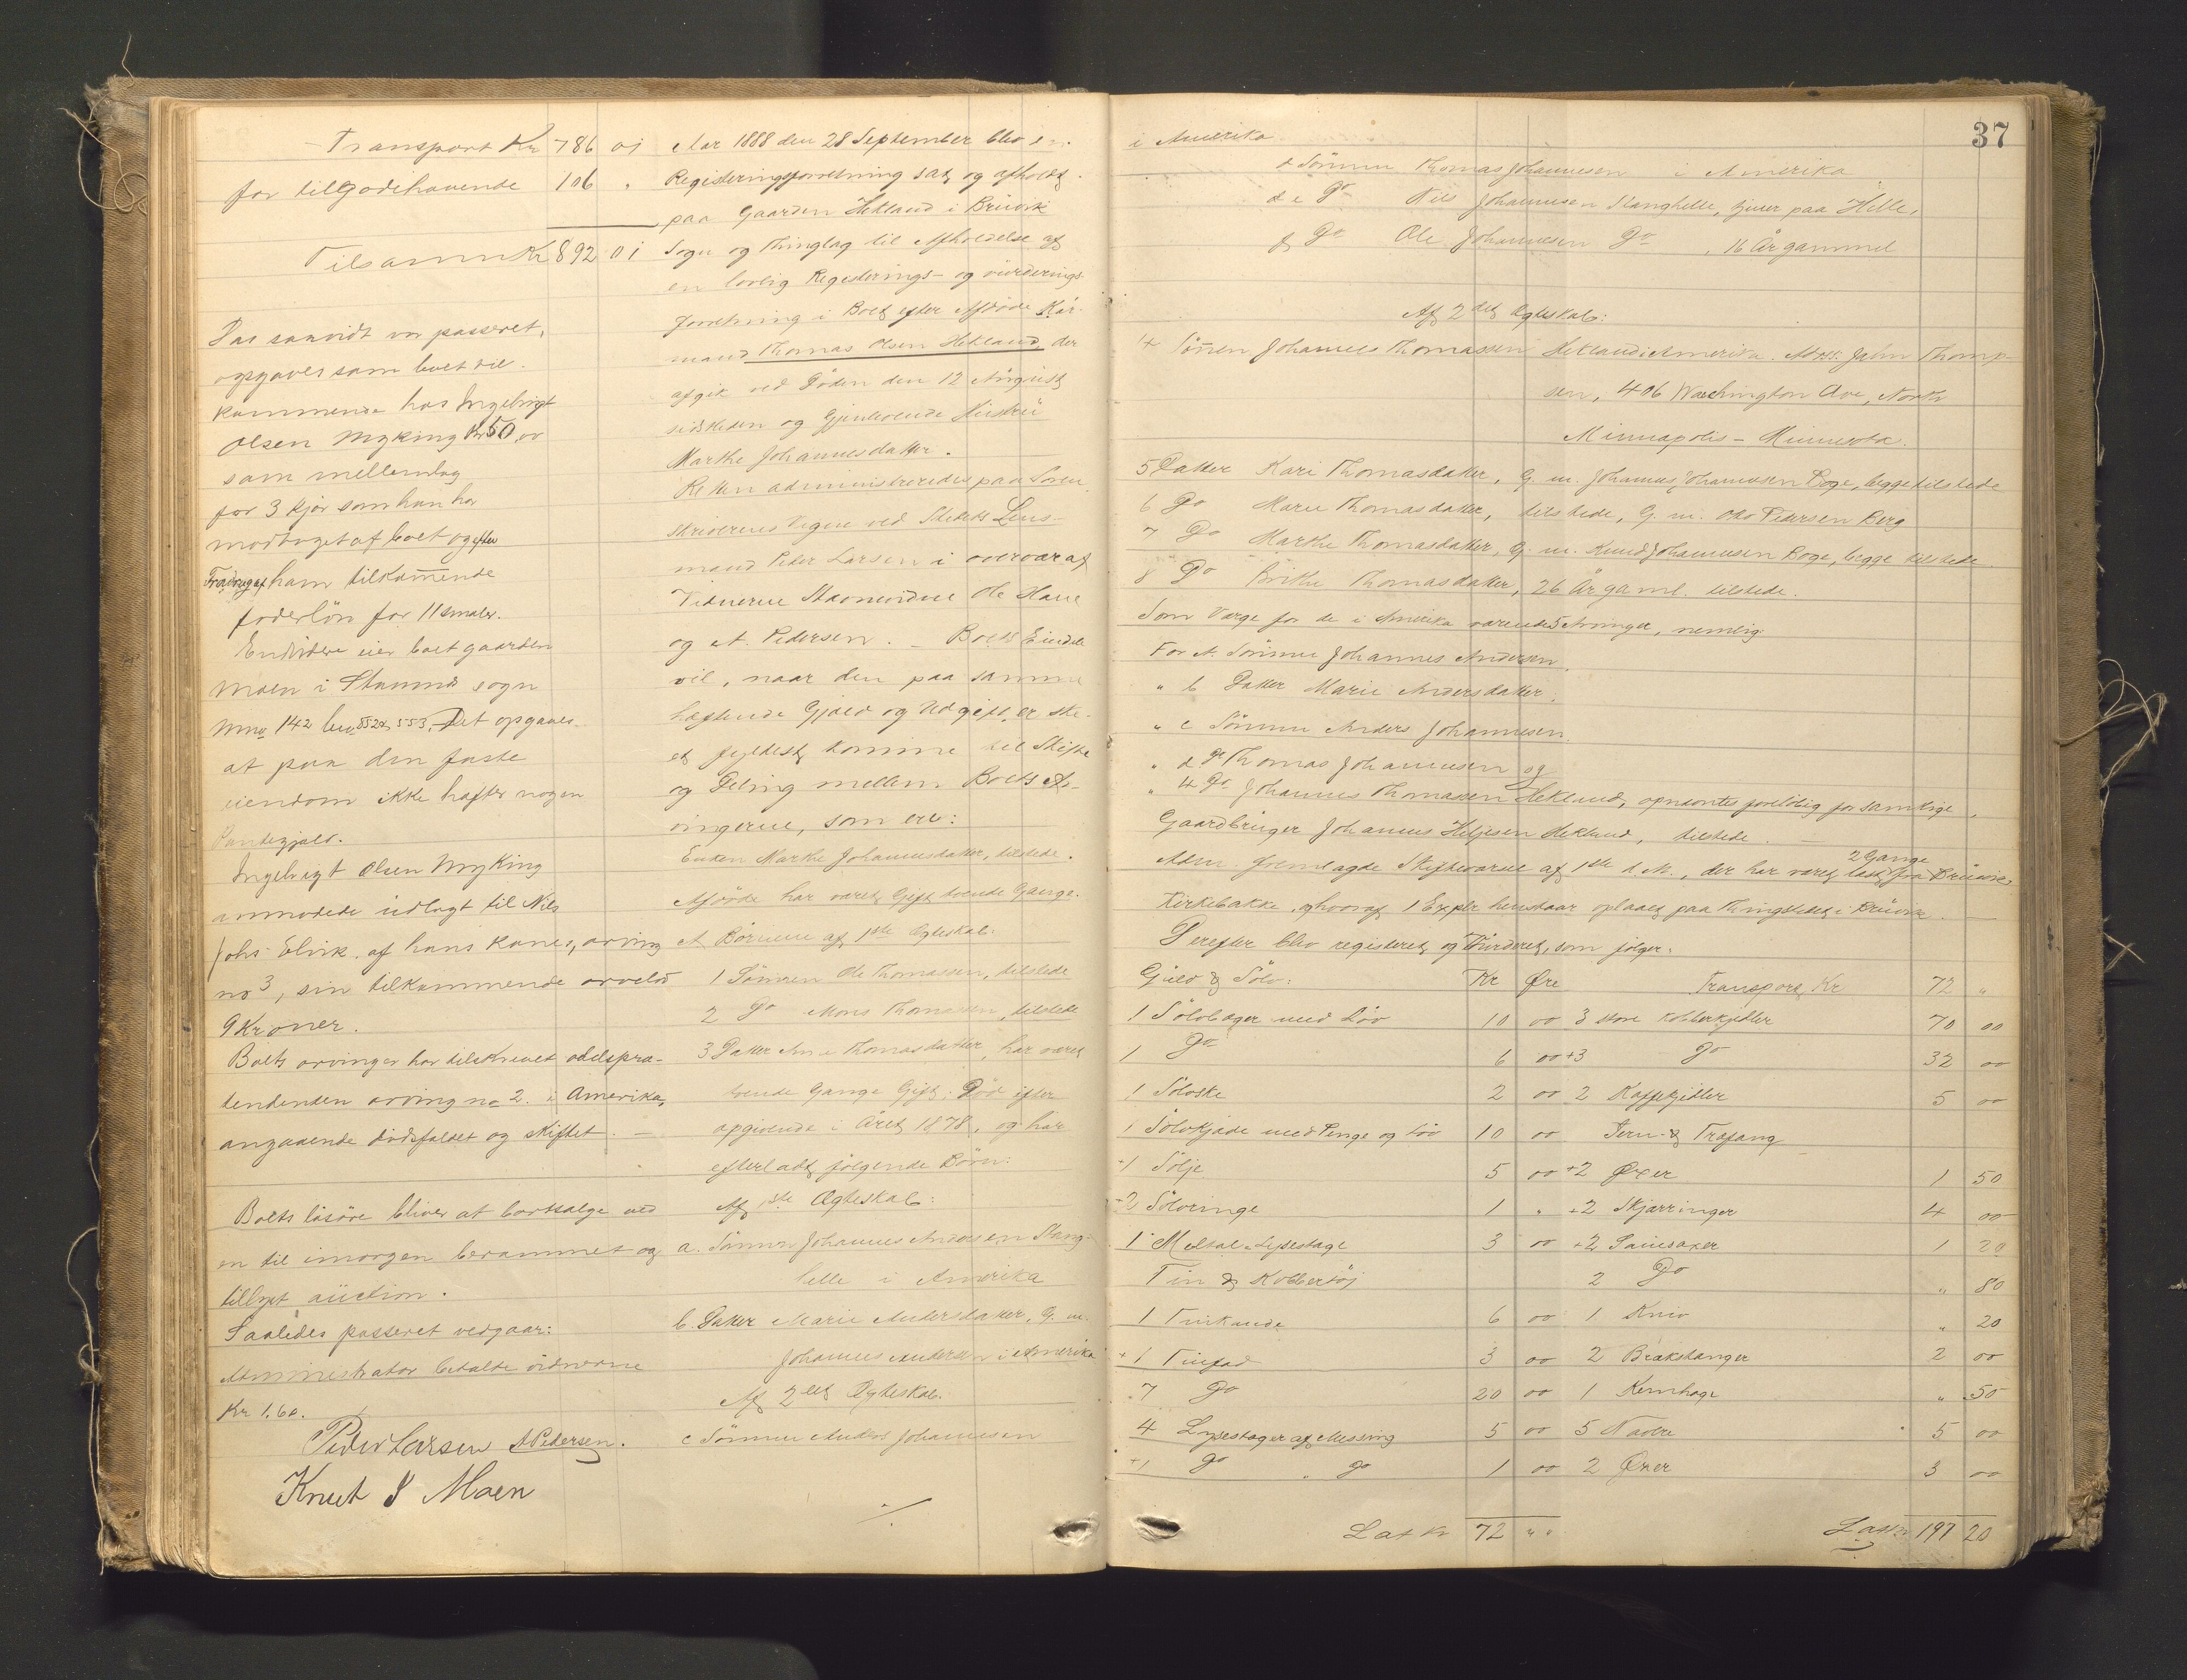 Transport Kr 786 01
for tilgodehavende 106 "
Tilsammen Kr 892 01
Das saavidt var passeret,
opgaves som boet til-
kommende hos Ingebrigt
Olsen Myking Kr 50,00
som mellemlag
for 3 kjør som han har
modtaget af boet og efter
Fradrag af ham tilkommende
foderløn for 11 smaler.
Endvidere eier boet gaarden
Moen i Stamnes sogn
Det opgaves
at paa den faste
eiendom ikke hefter nogen
Pantegjæld.
Ingebrigt Olsen Myking
anmodede udlagt til Nils
Johs Elvik af hans kones, arving
no 3, sin tilkommende arvelod
9 Kroner.
Boets arvinger har tilskrevet odelspræ-
tendenten arving no 2. i Amerika,
angaaende dødsfaldet og skiftet. —
Boets løsøre bliver at bortsælge ved
en til imorgen berammet og
tillyst auction.
Saaledes passeret vedgaar:
Administrator betalte vidnerne
Kr 1.60.
Peder Larsen A Pedersen.
Knut S Moen
Aar 1888 den 28 September blev en
Registeringsforretning sat og afholdt
paa Gaarden Hekland i Bruvik
Sogn og Thinglag til Afholdelse af
en lovlig Registerings- og vurderings-
forretning i Boet efter Afdøde Kår-
mand Thomas Olsen Hekland, der
afgik ved Døden den 12 August
sidstleden og Gjenlevende Hustru
Marthe Johannesdatter.
Retten administreredes paa Soren-
skriverens Vegne ved Stedets Lens-
mand Peder Larsen i overvær af
Vidnerne Stævnevidne Ole Haue
og A. Pedersen. — Boets Eiendele
vil, naar den paa samme
heftende Gjæld og Udgift er ske-
et fyldest komme til Skifte
og Deling mellem Boets Ar-
vingerne, som ere:
Enken Marthe Johannesdatter, tilstede.
Afdøde har været Gift tvende Gange.
A Børnene af 1ste Ægteskab:
1 Sønnen Ole Thomassen, tilstede
2 Do Mons Thomassen, tilstede
3 Datter Ane Thomasdatter, har været
tvende Gange Gift. Død efter
opgivende i Året 1878, og har
efterladt følgende Børn:
Af 1ste Ægteskab:
a. Sønnen Johannes Andersen Stang-
helle i Amerika
b. Datter Marie Andersdatter, G. m.
Johannes Andersen i Amerika
Af 2det Ægteskab.
c Sønnen Anders Johannesen
./.
37
i Amerika
d Sønnen Thomas Johannesen i Amerika
e Do Nils Johannesen Stanghelle, tjener paa Helle,
f Do Ole Johannesen Do, 16 År gammel
Af 2det Ægteskab:
4 Sønnen Johannes Thomassen Hekland i Amerika. Adrs: John Thomp-
sen, 406 Waschington Ave, North
Minnapolis – Minnesota.
5 Datter Kari Thomasdatter, G. m. Johannes Johannesen Boge, begge tilstede
6 Do Marie Thomasdatter, tilstede, G. m. Pedersen Berg
7 Do Marthe Thomasdatter, G. m. Knud Johannesen Boge, begge tilstede
8 Do Brithe Thomasdatter, 26 År gaml. tilstede.
Som Værge for de i Amerika værende 5 Arvinger, nemlig:
For A. Sønnen Johannes Andersen.
" b Datter Marie Andersdatter.
" c Sønnen Anders Johannesen.
" d Do Thomas Johannesen og
" 4 Do Johannes Thomassen Hekland, opnævntes foreløbig for samtlige,
Gaardbruger Johannes Heljesen Hekland, tilstede. —
Adm. fremlagde Skiftevarsel af 1ste d. M., der har været læst 2 Gange fra Bruvik
Kirkebakke, og hvoraf 1 Expler henstaar opslaaet paa Thingstedet i Bruvik. —
Derefter blev registeret og Vurderet, som følger:
Guld & Sølv: Kr Øre
1 Sølvbæger med Løv 10 00
1 Do 6 00
1 Sølvske 2 00
1 Sølvkjæde med Penge og Løv 10 00
+1 Sølje 5 00
+2 Sølvringe 1 "
1 Metal Lysestage 3 00
Tin & Kobbertøj
1 Tinkande 6 00
+1 Tinfad 3 00
7 Do 20 00
4 Lysestager af Messing 5 00
+1 Do " Do 1 00
Lat Kr 72 " "
Transport Kr 72 "
3 store Kobberkjedler 70 00
+3 Do 32 00
2 Kaffekjedler 5 00
Jern- & Træfang
+2 Øxer 1 50
+2 Skjærringer 4 00
+2 Sauesaxer 1 20
2 Do " 80
1 Kniv " 20
2 Brækstanger 2 00
1 Kornhage " 50
5 Navre 5 00
2 Øxer 3 00
Lat Kr 197 20